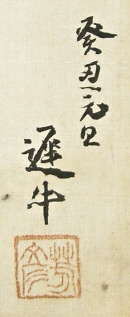 癸丑元旦
遲牛